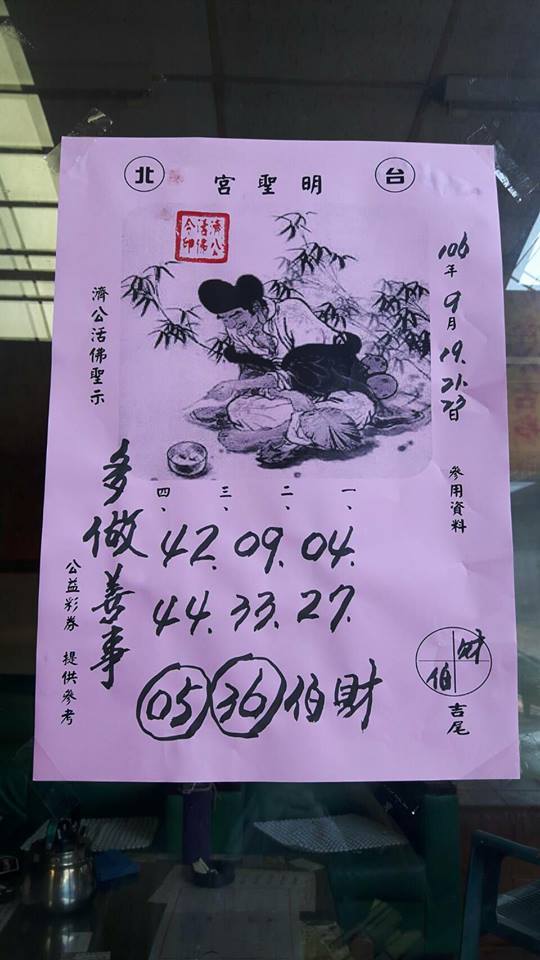 台北
明聖宮
濟公活佛今印
106年9月19.21.23日
參用資料
濟公活佛聖示
一、二、三、四、
04.09.42.
27.33.44.
財伯 36 05
多做善事
財伯
吉尾
公益彩券 提供參考